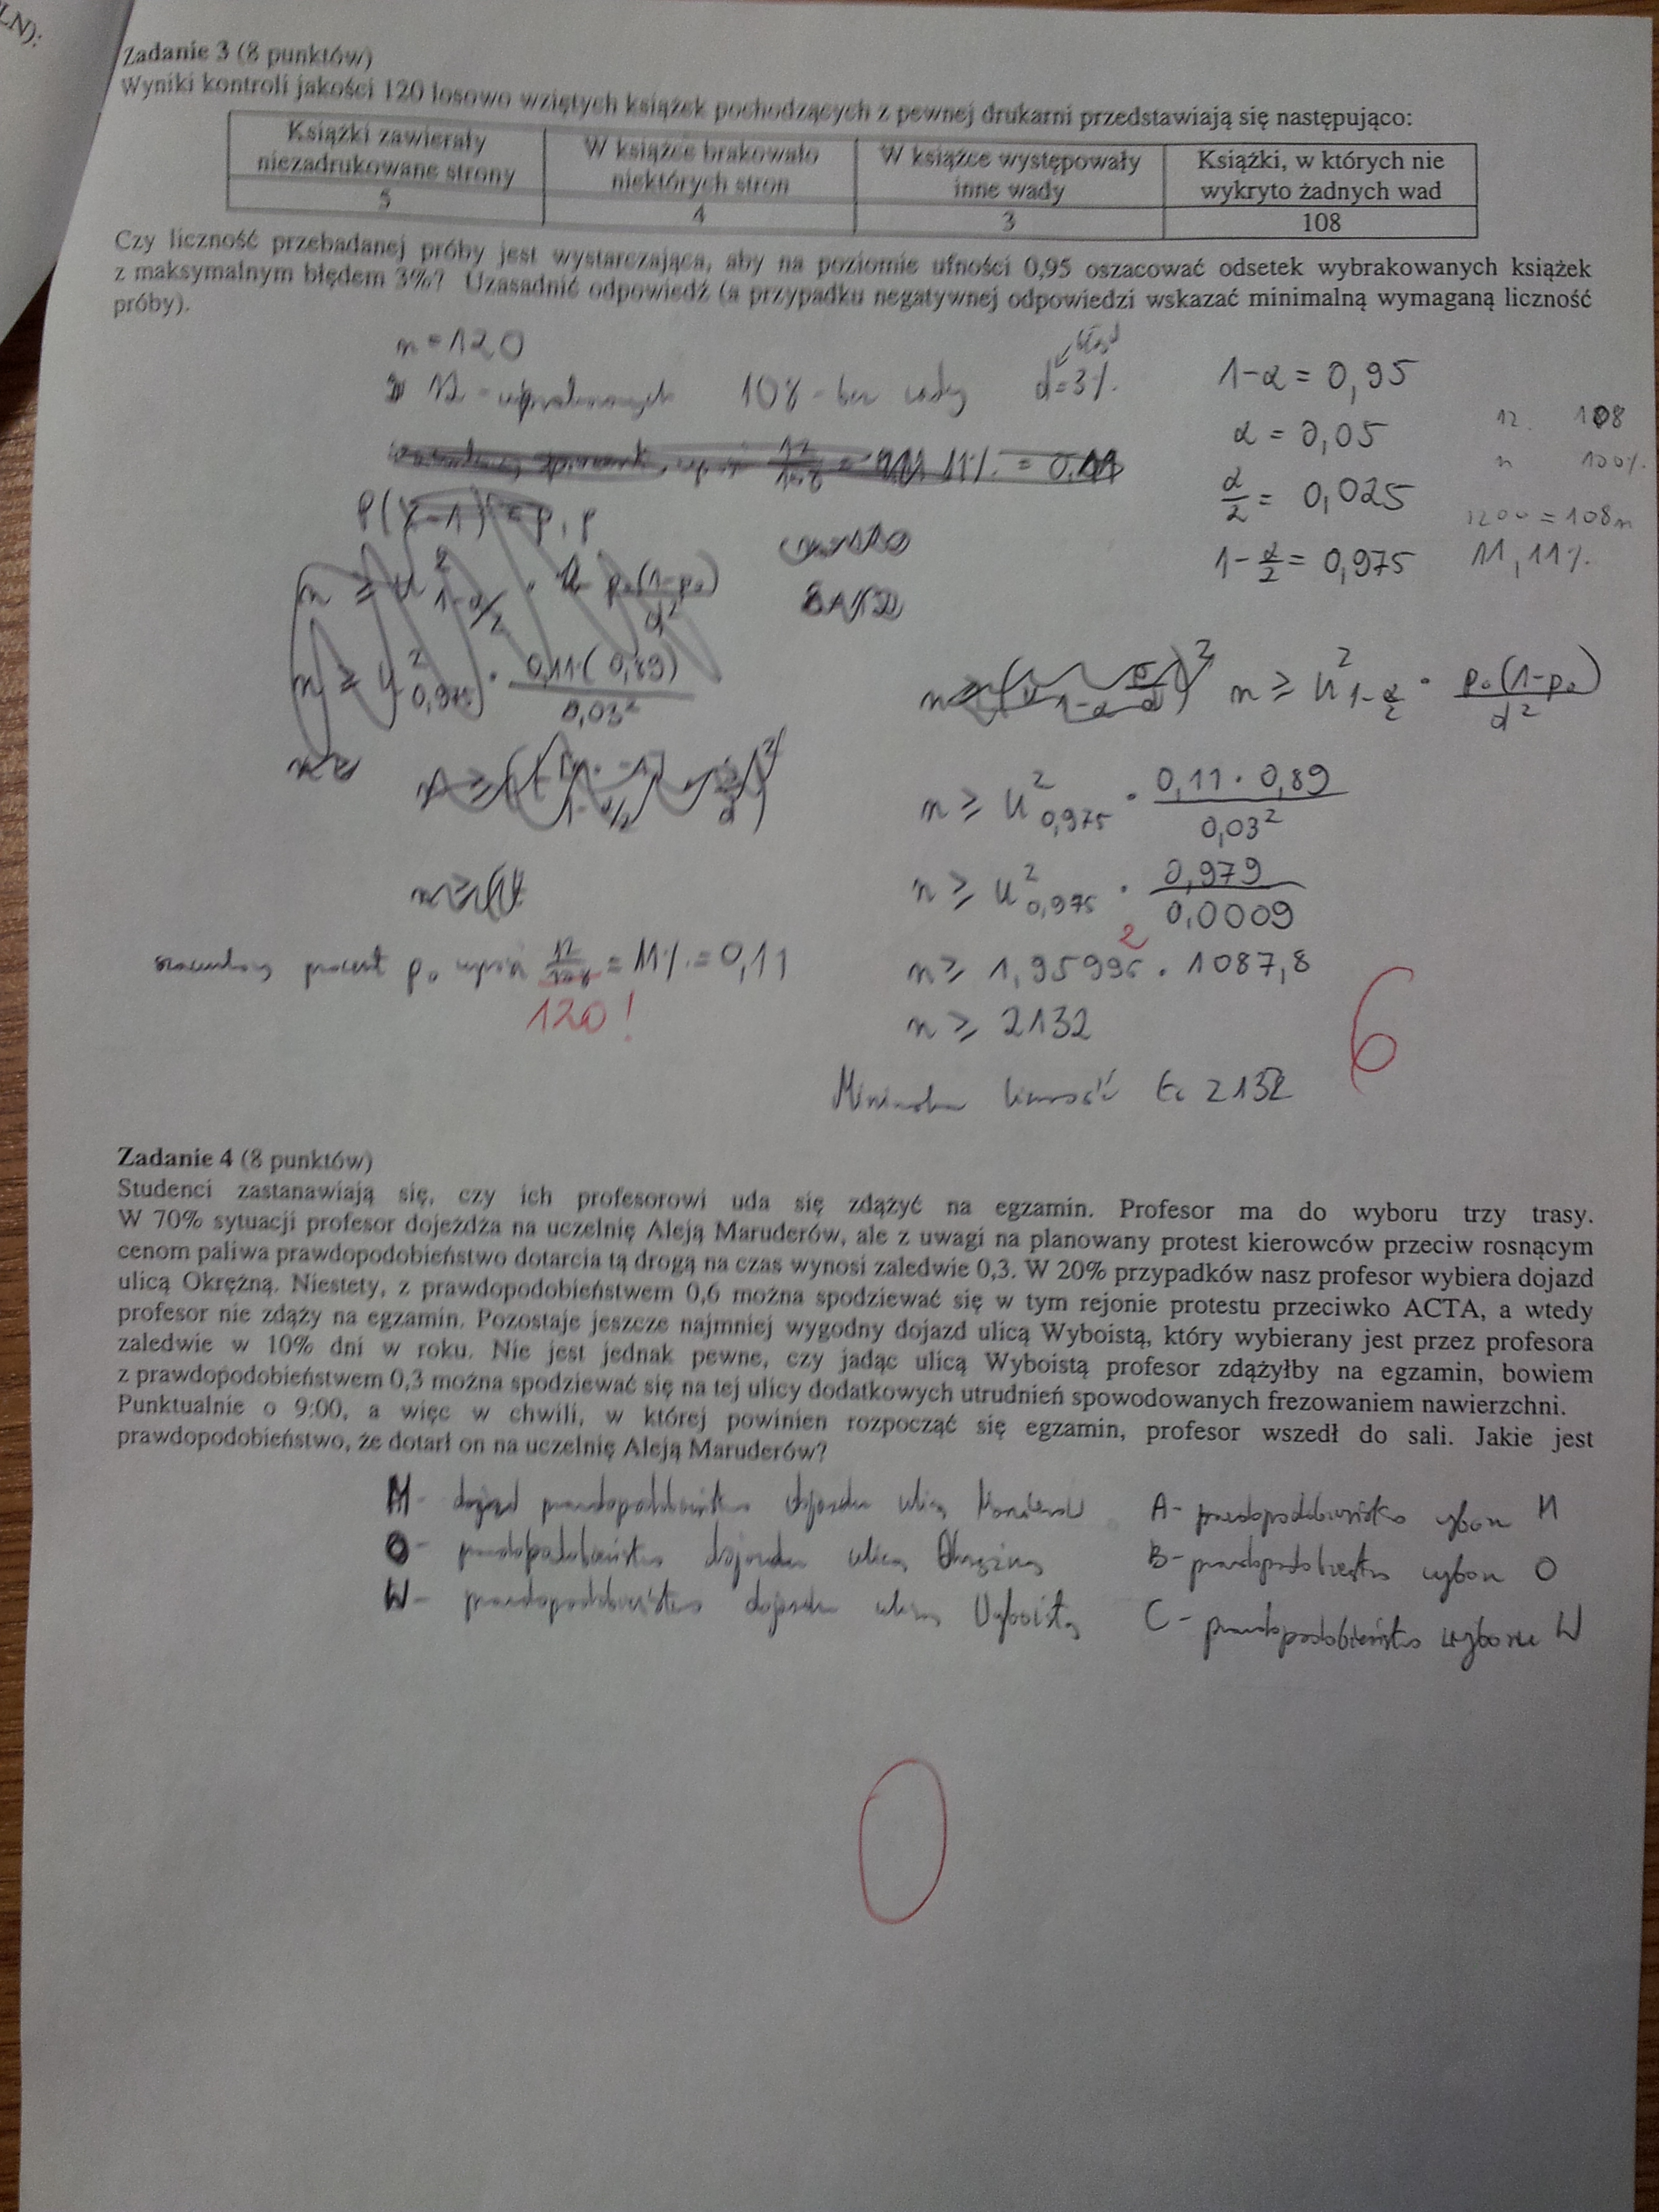 LN):
Zadanie 3 (8 punktów)
Wyniki kontroli jakości 120 losowo wziętych książek pochodzących z pewnej drukarni przedstawiają się następująco:
Książki zawierały niezadrukowane strony
W książce brakowało niektórych stron
W książce występowały inne wady
Książki, w których nie wykryto żadnych wad
5 4 3 108
Czy liczność przebadanej próby jest wystarczająca, aby na poziomie ufności 0,95 oszacować odsetek wybrakowanych książek
z maksymalnym błędem 3%? Uzasadnić odpowiedź (a przypadku negatywnej odpowiedzi wskazać minimalną wymaganą liczność
próby).
n = 120
błąd
12 - wybrakowanych 108 - bez wady d=3%
1-α = 0,95
α = 0,05
α/2 = 0,025
1-α/2 = 0,975
12 108
n 100%
1200 = 108n
11,11%
n ≥ u²1-α/2 · p₀(1-p₀)/d²
n ≥ u²0,975 · 0,11·0,89/0,03²
n ≥ u²0,975 · 0,979/0,0009
szacunkowy procent p₀ wynosi 12/108 = 11% = 0,11
120!
n ≥ 1,95996² · 1087,8
n ≥ 2132
Minimalna liczność to 2132
6
Zadanie 4 (8 punktów)
Studenci zastanawiają się, czy ich profesorowi uda się zdążyć na egzamin. Profesor ma do wyboru trzy trasy.
W 70% sytuacji profesor dojeżdża na uczelnię Aleją Maruderów, ale z uwagi na planowany protest kierowców przeciw rosnącym
cenom paliwa prawdopodobieństwo dotarcia tą drogą na czas wynosi zaledwie 0,3. W 20% przypadków nasz profesor wybiera dojazd
ulicą Okrężną. Niestety, z prawdopodobieństwem 0,6 można spodziewać się w tym rejonie protestu przeciwko ACTA, a wtedy
profesor nie zdąży na egzamin. Pozostaje jeszcze najmniej wygodny dojazd ulicą Wyboistą, który wybierany jest przez profesora
zaledwie w 10% dni w roku. Nie jest jednak pewne, czy jadąc ulicą Wyboistą profesor zdążyłby na egzamin, bowiem
z prawdopodobieństwem 0,3 można spodziewać się na tej ulicy dodatkowych utrudnień spowodowanych frezowaniem nawierzchni.
Punktualnie o 9:00, a więc w chwili, w której powinien rozpocząć się egzamin, profesor wszedł do sali. Jakie jest
prawdopodobieństwo, że dotarł on na uczelnię Aleją Maruderów?
M - prawdopodobieństwo dojazdu ulicą Maruderów
O - prawdopodobieństwo dojazdu ulicą Okrężną
W - prawdopodobieństwo dojazdu ulicą Wyboistą
A - prawdopodobieństwo wyboru M
B - prawdopodobieństwo wyboru O
C - prawdopodobieństwo wyboru W
0